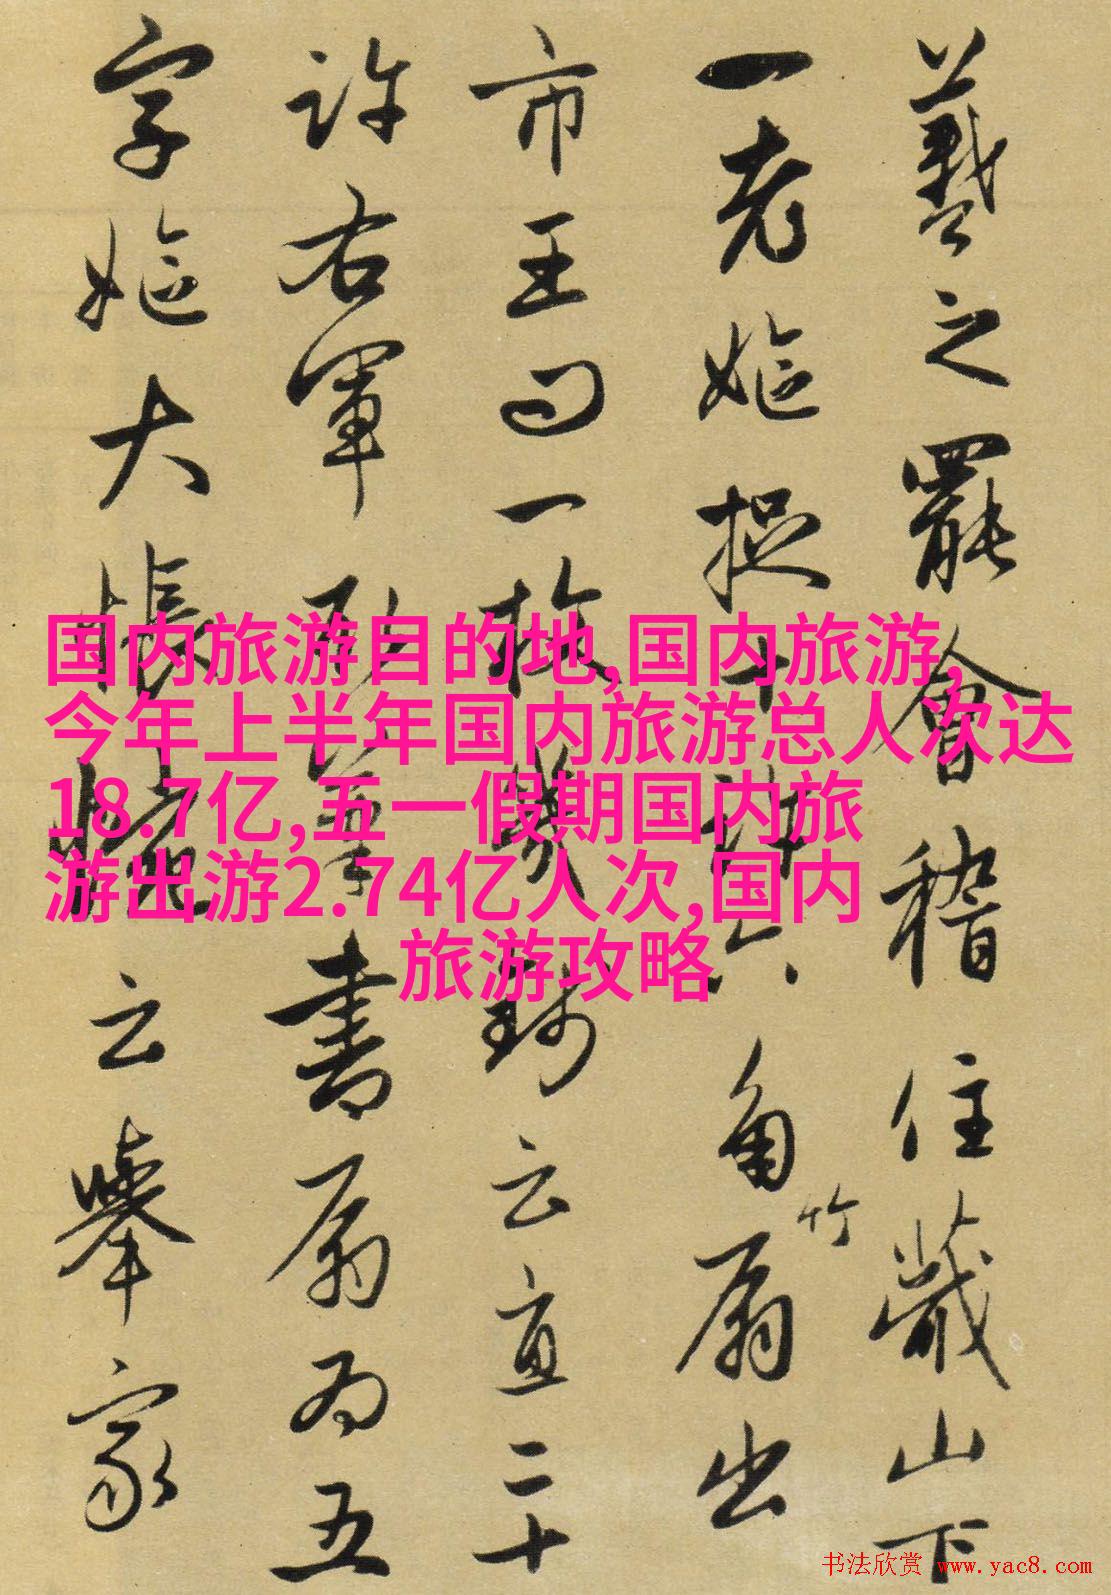 羲之罷會稽住蕺山下
一老嫗捉十許六角竹扇出
市王曰一枚幾錢云直二十
許右軍取筆書扇為五
字嫗大悵惋云舉家
国内旅游目的地,国内旅游,
今年上半年国内旅游总人次达
18.7亿,五一假期国内旅
游出游2.74亿人次,国内
旅游攻略
书法欣赏 www.yac8.com